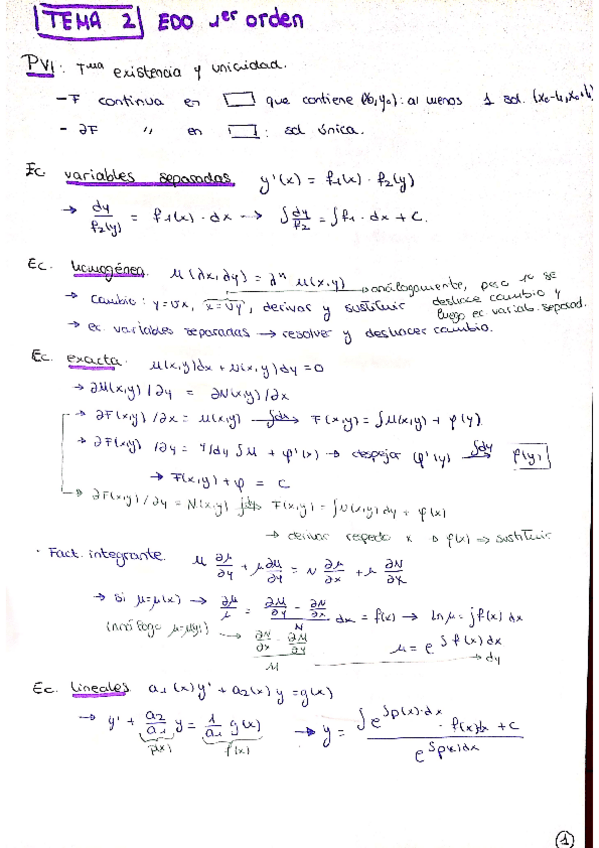 TEMA 2 EDO 1er orden
PVI: Tma existencia y unicidad.
- F continua en ▭ que contiene (x0,y0): al menos 1 sol. (x0-h,x0+h)
- ∂F " en ▭: sol única.
Ec. variables separadas y'(x) = f1(x) · f2(y)
→ dy/f2(y) = f1(x)·dx → ∫dy/f2 = ∫f1·dx + C.
Ec. homogénea. M(λx,λy) = λ^n M(x,y)
→ cambio: y=vx, x=vy, derivar y sustituir
→ análogamente, pero se deshace cambio y luego ec variab. separad.
→ ec. variables separadas → resolver y deshacer cambio.
Ec. exacta. M(x,y)dx + N(x,y)dy = 0
→ ∂M(x,y)/∂y = ∂N(x,y)/∂x
→ ∂F(x,y)/∂x = M(x,y) ∫dx→ F(x,y) = ∫M(x,y) + φ(y)
→ ∂F(x,y)/∂y = ∂/∂y ∫M + φ'(y) → despejar φ'(y) ∫dy→ φ(y)
→ F(x,y) + φ = C
→ ∂F(x,y)/∂y = N(x,y) ∫dy→ F(x,y) = ∫N(x,y)dy + φ(x)
→ derivar respecto x φ(x) ⇒ sustituir
· Fact. integrante. M ∂μ/∂y + μ ∂M/∂y = N ∂μ/∂x + μ ∂N/∂x
→ si μ=μ(x) → ∂μ/μ = (∂M/∂y - ∂N/∂x)/N dx = f(x) → ln μ = ∫f(x)dx
(análogo μ=μ(y)) → (∂N/∂x - ∂M/∂y)/M
μ = e^∫f(x)dx
→ dy
Ec. lineales a1(x)y' + a2(x)y = g(x)
→ y' + a2/a1 y = 1/a1 g(x) → y = (∫e^∫p(x)·dx · f(x)dx + C)/e^∫p(x)dx
p(x) f(x)
1